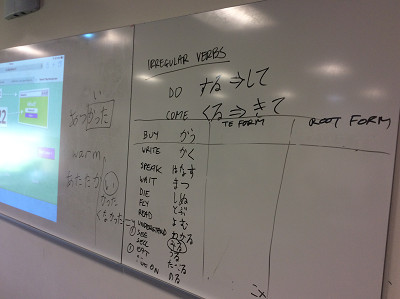 IRREGULAR VERBS
DO する ⇒ して
COME くる ⇒ きて
TE FORM
ROOT FORM
BUY かう
WRITE かく
SPEAK はなす
WAIT まつ
DIE しぬ
FLY とぶ
READ よむ
UNDERSTAND わかる
SEE みる
SELL うる
EAT たべる
のる
い
あつかった
warm
あたたか い
かった
くなかった